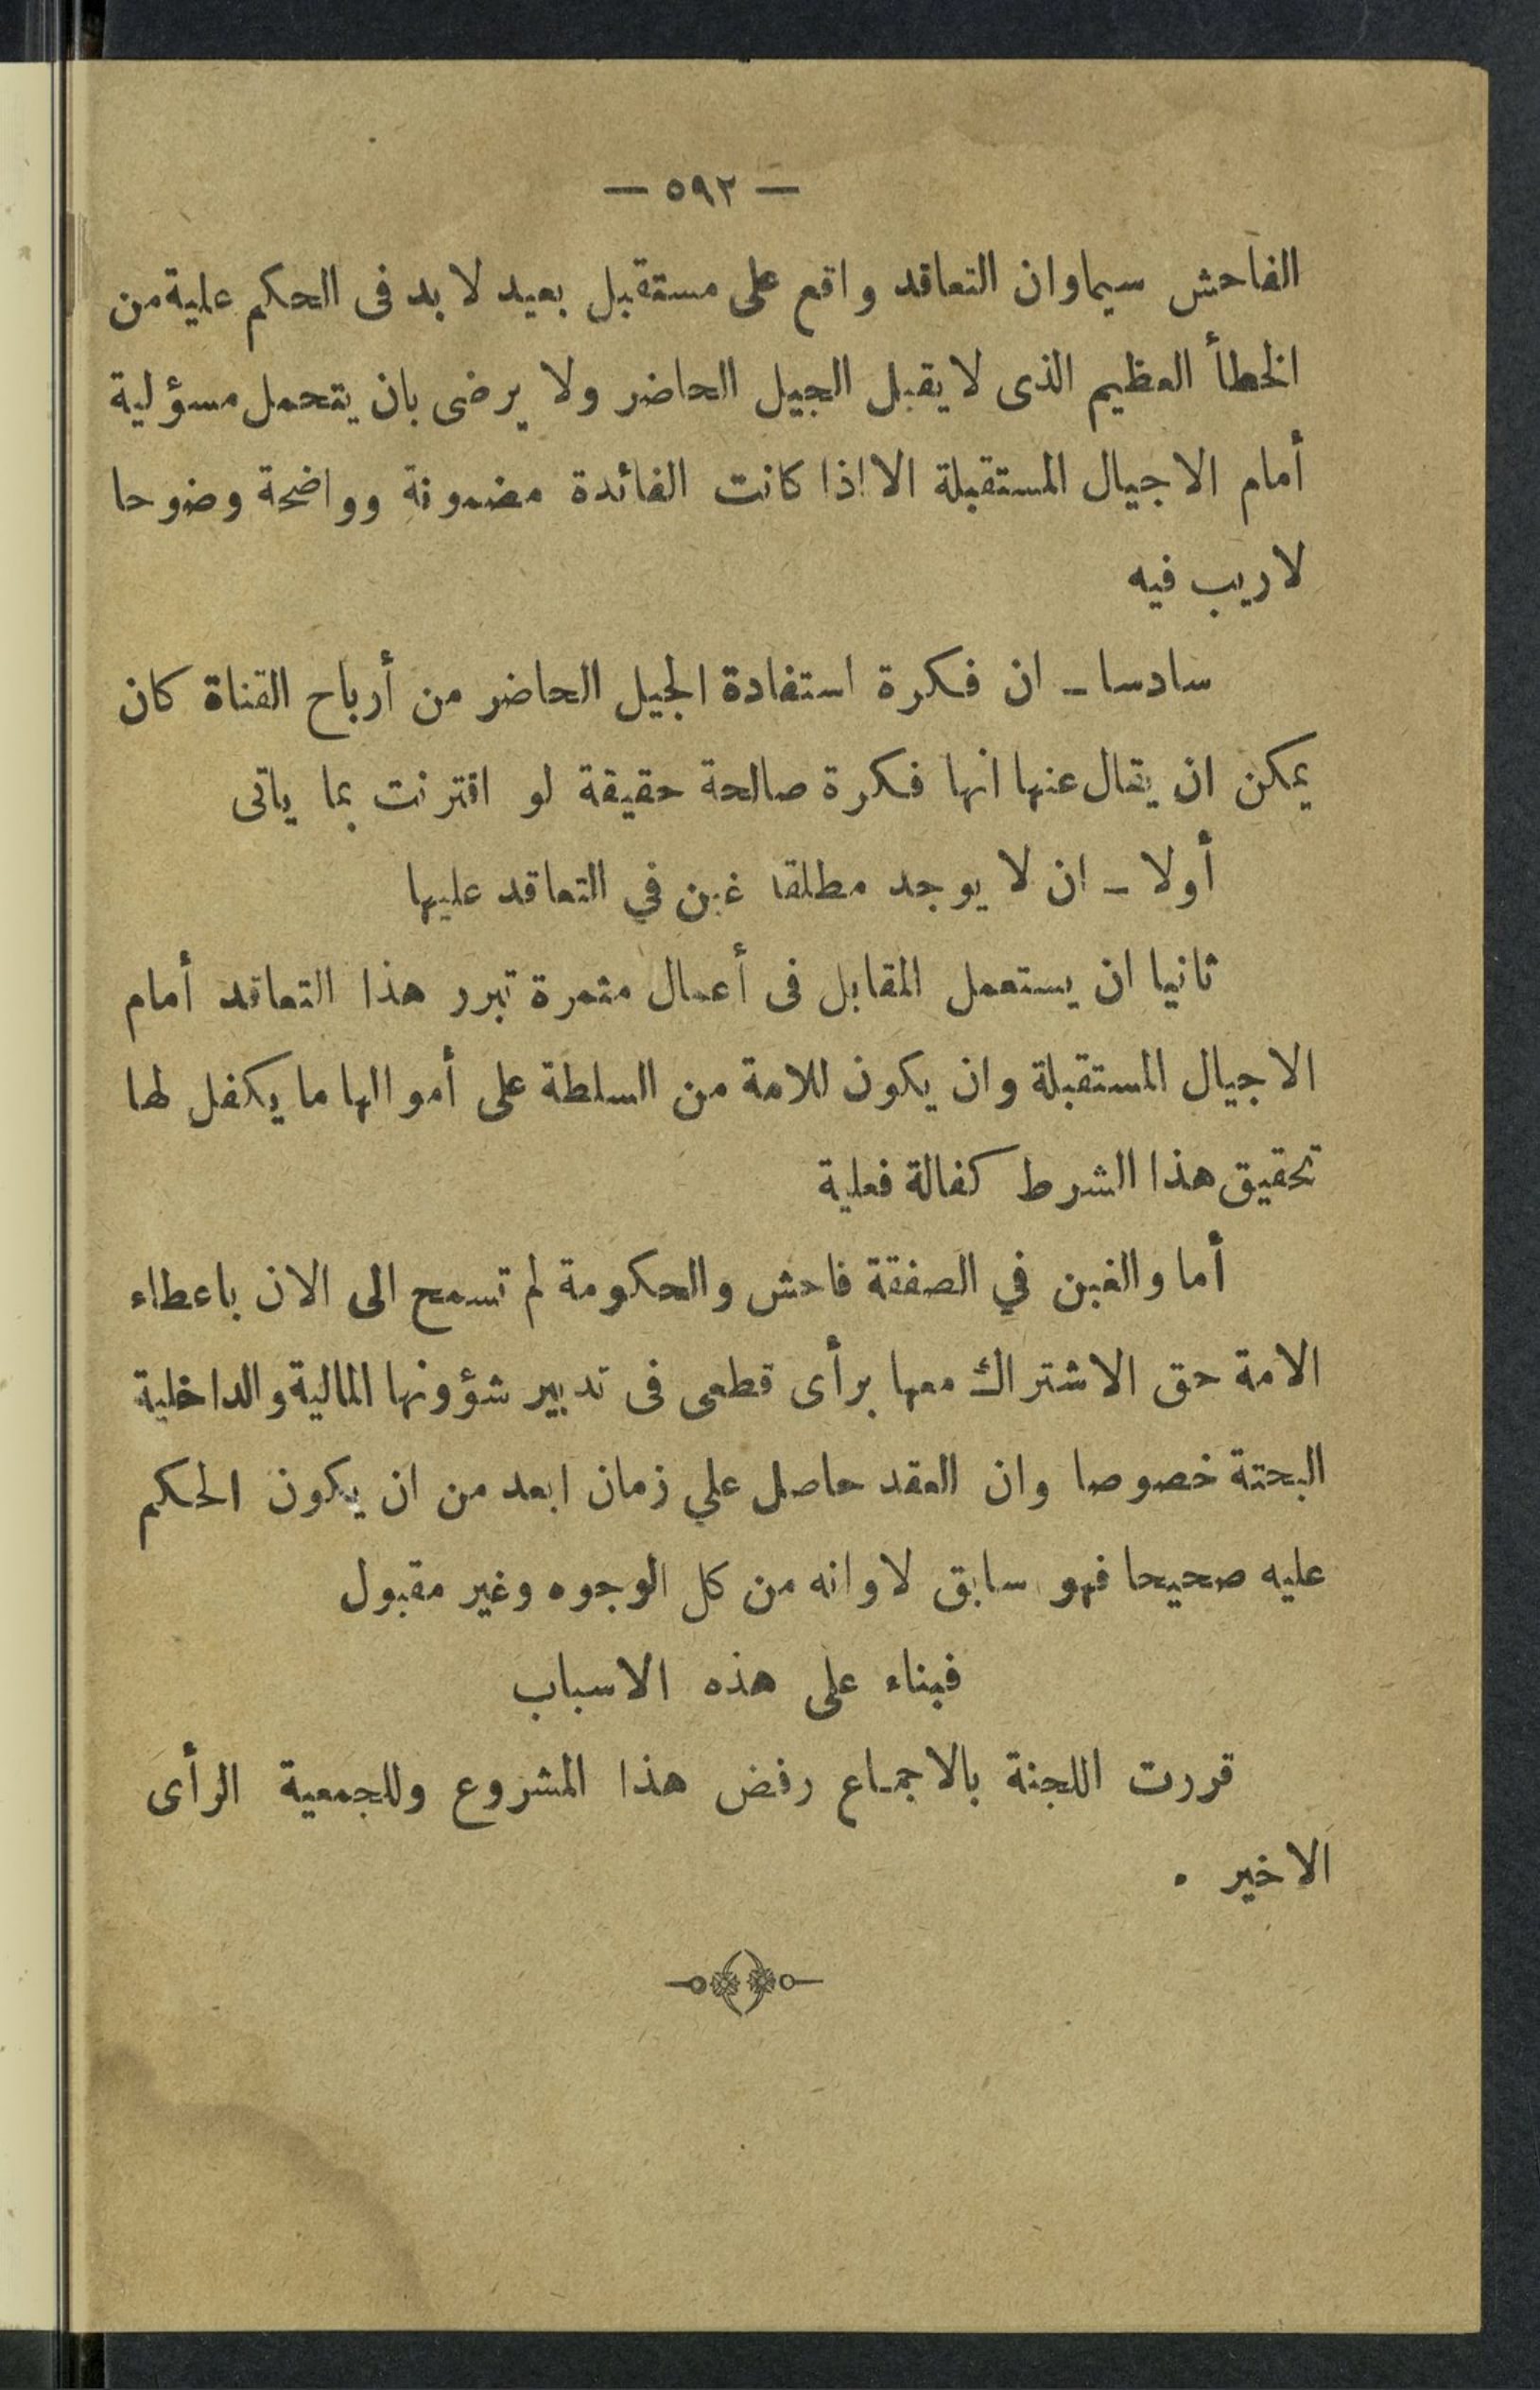 — ٥٩٢ —
الفاحش سيما وان التعاقد واقع على مستقبل بعيد لا بد فى الحكم علية من
الخطأ العظيم الذى لا يقبل الجيل الحاضر ولا يرضى بان يتحمل مسؤلية
أمام الاجيال المستقبلة الا اذا كانت الفائدة مضمونة وواضحة وضوحا
لا ريب فيه
سادسا ـ ان فكرة استفادة الجيل الحاضر من أرباح القناة كان
يمكن ان يقال عنها انها فكرة صالحة حقيقة لو اقترنت بما ياتى
أولا ـ ان لا يوجد مطلقا غبن في التعاقد عليها
ثانيا ان يستعمل المقابل فى أعمال مثمرة تبرر هذا التعاقد أمام
الاجيال المستقبلة وان يكون للامة من السلطة على أموالها ما يكفل لها
تحقيق هذا الشرط كفالة فعلية
أما والغبن في الصفقة فاحش والحكومة لم تسمح الى الان باعطاء
الامة حق الاشتراك معها برأى قطعى فى تدبير شؤونها المالية والداخلية
البحتة خصوصا وان العقد حاصل علي زمان ابعد من ان يكون الحكم
عليه صحيحا فهو سابق لاوانه من كل الوجوه وغير مقبول
فبناء على هذه الاسباب
قررت اللجنة بالاجماع رفض هذا المشروع وللجمعية الرأى
الاخير .